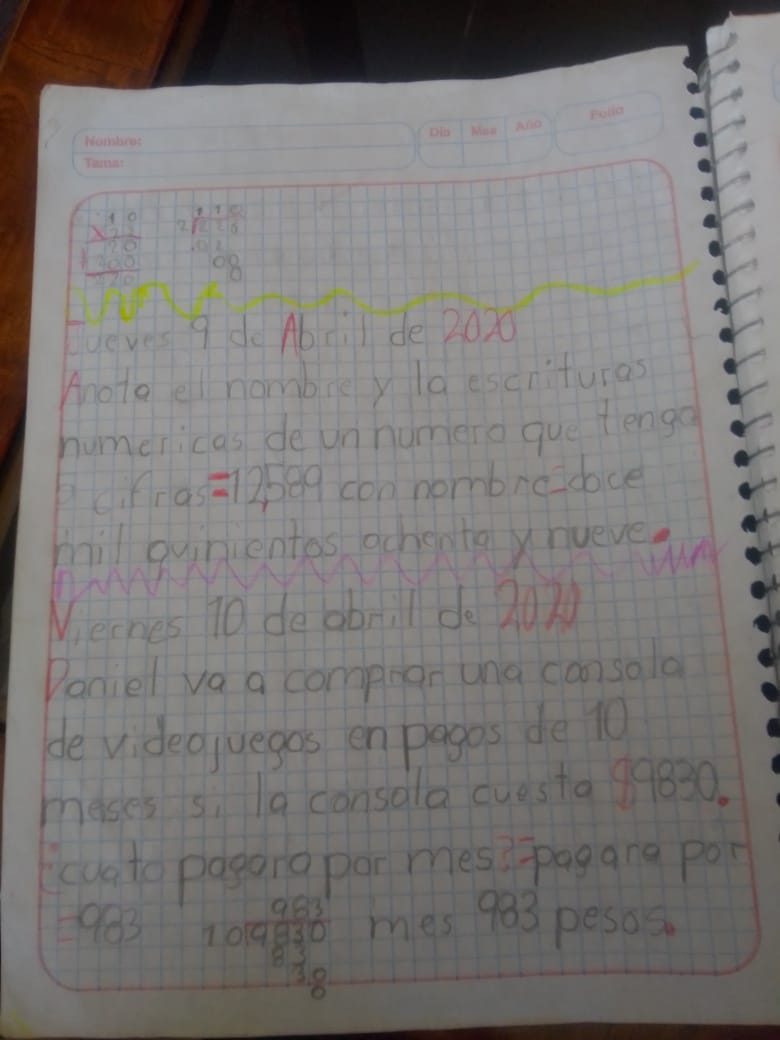 Nombre:
Tema:
Día Mes Año
Folio
10
220
110
2
02
08
Jueves 9 de Abril de 2020
Anota el nombre y la escrituras
numericas de un numero que tenga
cifras=12,589 con nombre=doce
mil quinientos ochenta y nueve.
Viernes 10 de abril de 2020
Daniel va a comprar una consola
de videojuegos en pagos de 10
meses si la consola cuesta $9830.
¿cuato pagara por mes?=pagara por
=983
983
10 9830
83
mes 983 pesos.